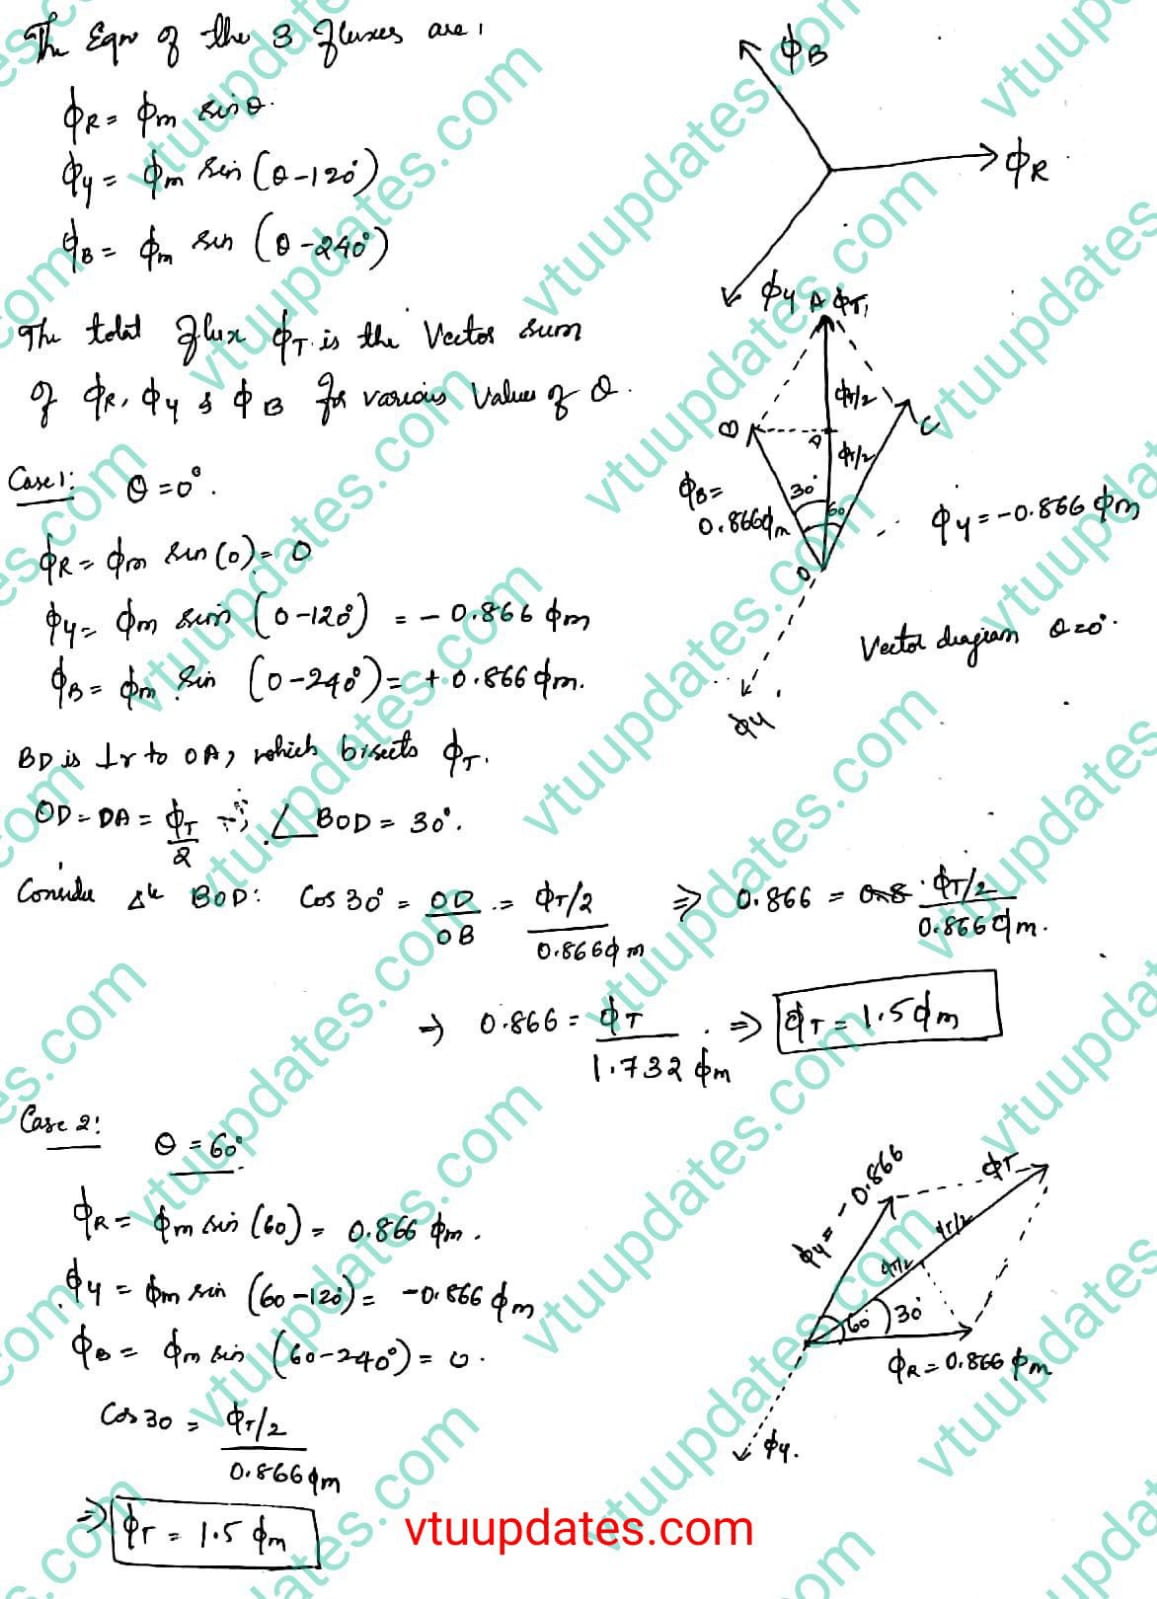 The Eqn of the 3 fluxes are,
ϕR = ϕm sinθ.
ϕy = ϕm sin (θ-120°)
ϕB = ϕm sin (θ-240°)
The total flux ϕT is the Vector sum
of ϕR, ϕy & ϕB for various Values of θ.
ϕB
ϕR
ϕy
Case 1: θ = 0°.
ϕR = ϕm sin(0) = 0
ϕy = ϕm sin (0-120°) = -0.866 ϕm
ϕB = ϕm sin (0-240°) = +0.866 ϕm.
A ϕT,
ϕT/2
ϕT/2
B
D
C
30°
60
ϕB =
0.866ϕm
ϕy = -0.866 ϕm
O
ϕy
Vector diagram θ=0°.
BD is ⊥r to OA, which bisects ϕT.
OD = DA = ϕT/2 ∠BOD = 30°.
Consider Δle BOD: Cos 30° = OD/OB = (ϕT/2)/(0.866ϕm) ⇒ 0.866 = (ϕT/2)/(0.866ϕm).
⇒ 0.866 = ϕT/(1.732 ϕm) ⇒ ϕT = 1.5ϕm
Case 2: θ = 60°
ϕR = ϕm sin (60) = 0.866 ϕm.
ϕy = ϕm sin (60-120) = -0.866 ϕm
ϕB = ϕm sin (60-240°) = 0.
Cos 30 = (ϕT/2)/(0.866ϕm)
⇒ ϕT = 1.5 ϕm
ϕy = -0.866
ϕT
ϕT/2
ϕT/2
60°
30°
ϕR = 0.866 ϕm
ϕy.
vtuupdates.com